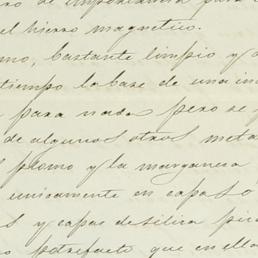 ro de importancia para
el hierro magnetico.
mo, bastante limpio y
tiempo la base de una in
para nada pero se
de algunos otros meta
plomo y la manganesa
unicamente en capas ó
y capas de silica
potrefacto que en ella